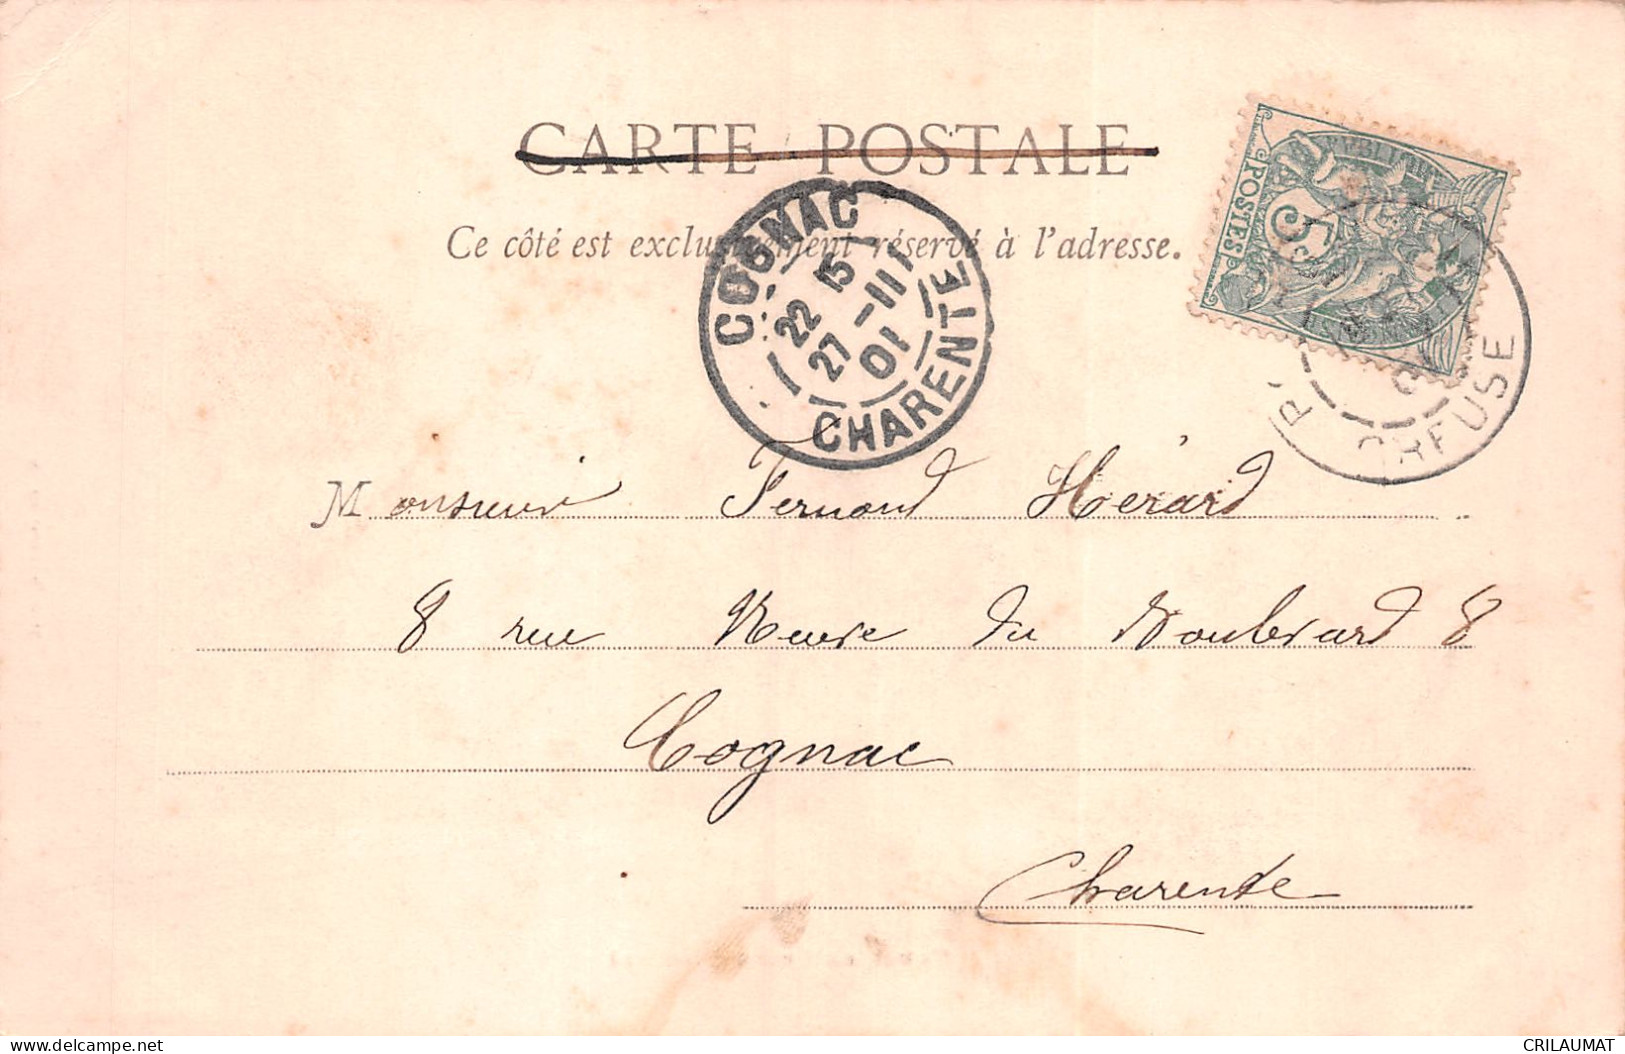 CARTE POSTALE
Ce côté est exclusivement réservé à l'adresse.
COGNAC
22 15
27 -III
01
CHARENTE
REPUBLIQUE
POSTES
5
CREUSE
Monsieur Fernand Hérard
8 rue Neuve du Boulevard 8
Cognac
Charente
CRILAUMAT